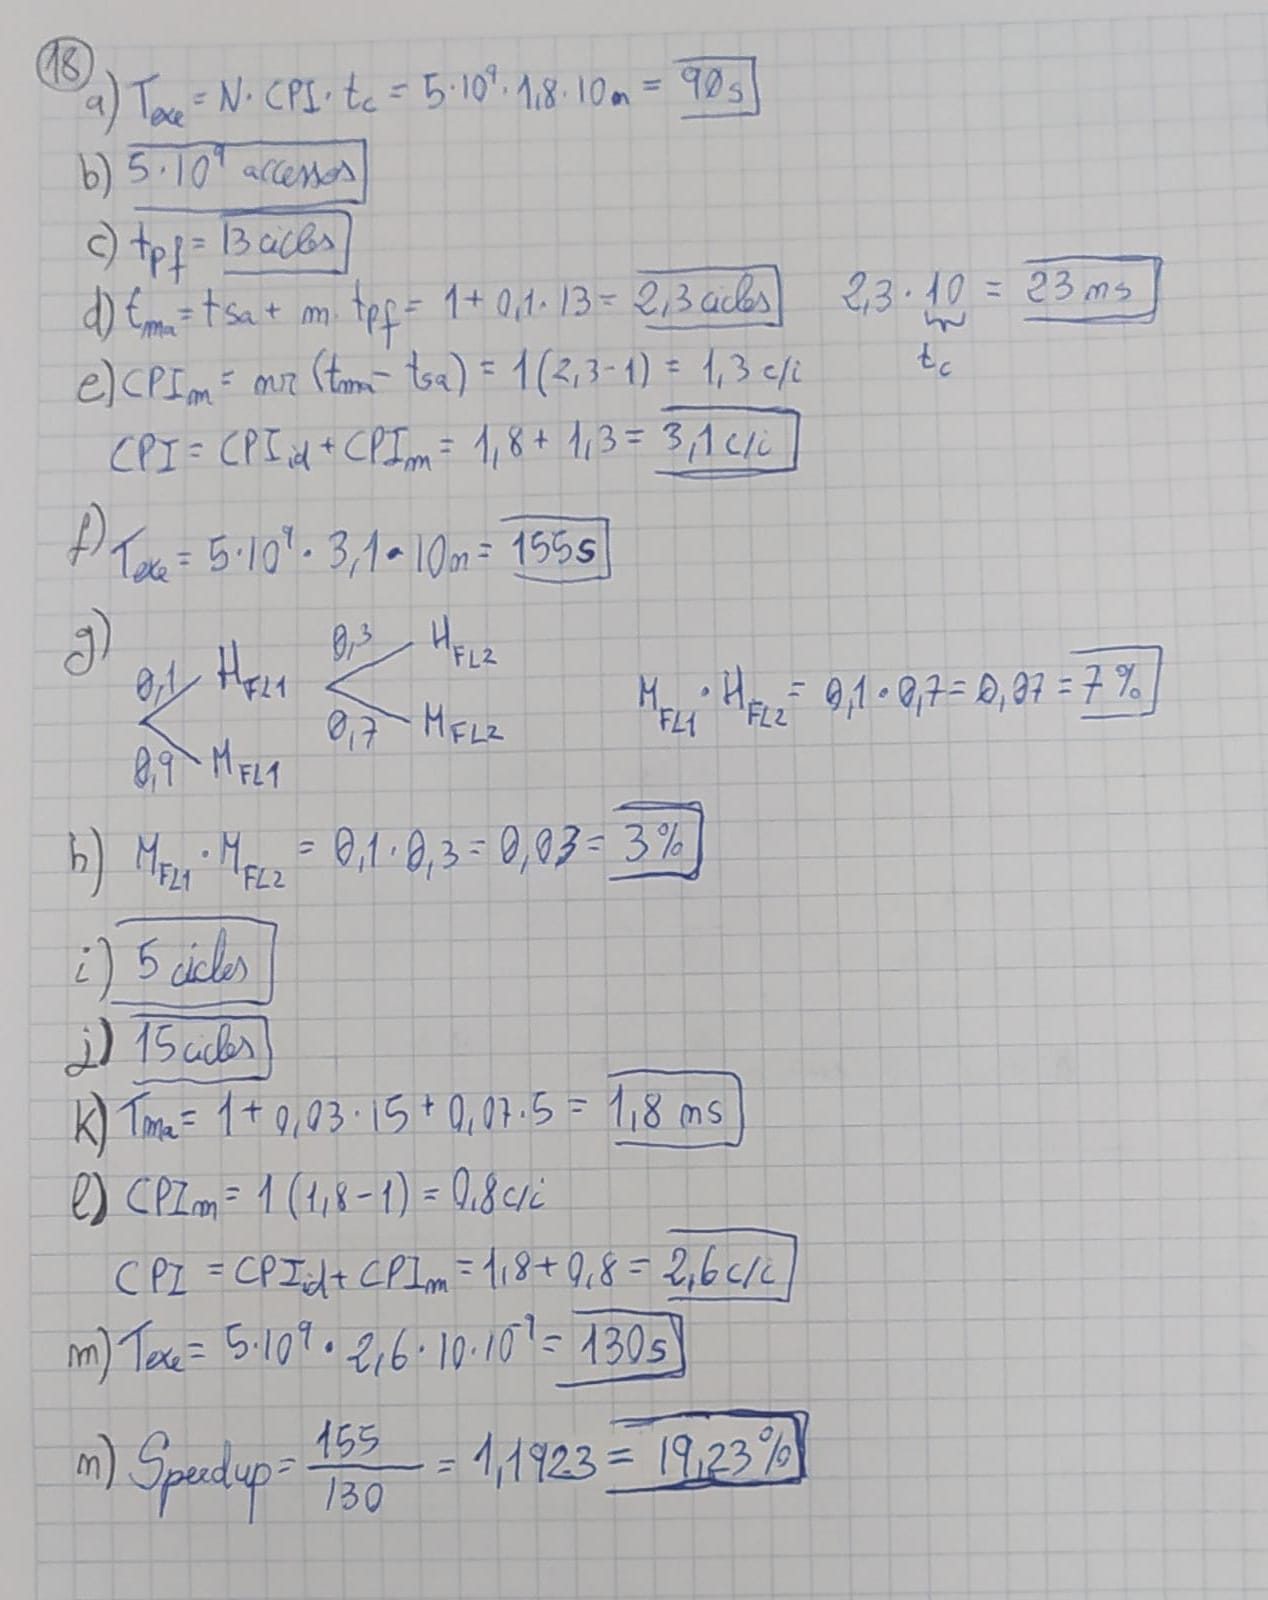 18
a) Texe = N · CPI · tc = 5·10⁹ · 1,8 · 10n = 90s
b) 5·10⁹ accessos
c) tpf = 13 cicles
d) tma = tsa + m · tpf = 1 + 0,1 · 13 = 2,3 cicles 2,3 · 10 = 23 ns
tc
e) CPIm = nr (tma - tsa) = 1(2,3-1) = 1,3 c/i
CPI = CPIid + CPIm = 1,8 + 1,3 = 3,1 c/i
f) Texe = 5·10⁹ · 3,1 · 10n = 155s
g) 0,1 HFL1 0,3 HFL2
0,9 MFL1 0,7 MFL2
MFL1 · HFL2 = 0,1 · 0,7 = 0,07 = 7%
h) MFL1 · MFL2 = 0,1 · 0,3 = 0,03 = 3%
i) 5 cicles
j) 15 cicles
k) Tma = 1 + 0,03 · 15 + 0,07 · 5 = 1,8 ns
l) CPIm = 1 (1,8 - 1) = 0,8 c/i
CPI = CPIid + CPIm = 1,8 + 0,8 = 2,6 c/i
m) Texe = 5·10⁹ · 2,6 · 10 · 10⁻⁹ = 130s
n) Speedup = 155/130 = 1,1923 = 19,23%